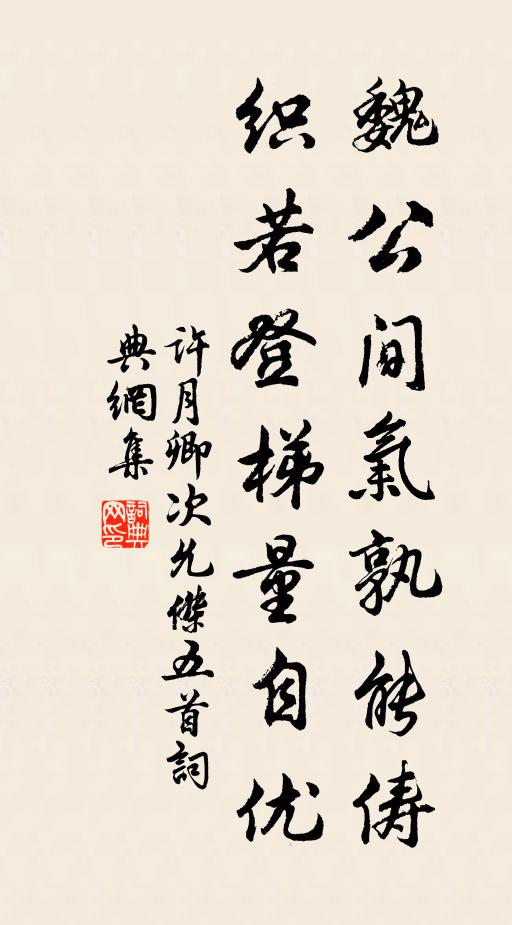 魏公间氣孰能俦
织若登梯量自优
许月卿次允傑五首詞
典網集
詞典网印